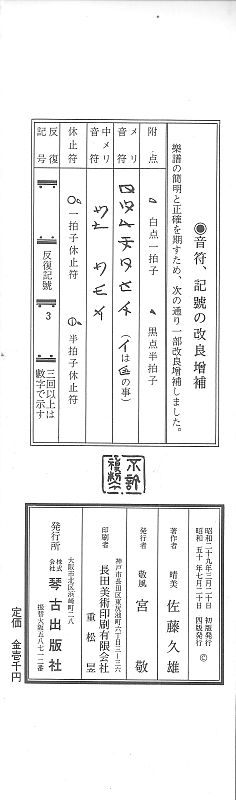 ◉音符、記號の改良増補
樂譜の簡明と正確を期すため、次の通り一部改良増補しました。
附点
白点一拍子
黒点半拍子
メリ音符
(イは
の事)
中メリ音符
休止符
一拍子休止符
半拍子休止符
反復記号
反復記號
3
三回以上は数字で示す
不許複製
昭和二十九年三月二十日 初版発行
昭和五十年七月二十日 四版発行
©
著作者 晴美 佐藤久雄
発行者 敬風 宮敬
神戸市長田区東尻池町六丁目二ー三六
印刷者 長田美術印刷有限会社
重松
大阪市北区浜崎町二八
発行所 株式会社 琴古出版社
振替大阪五八七一二番
定価 金壱千円